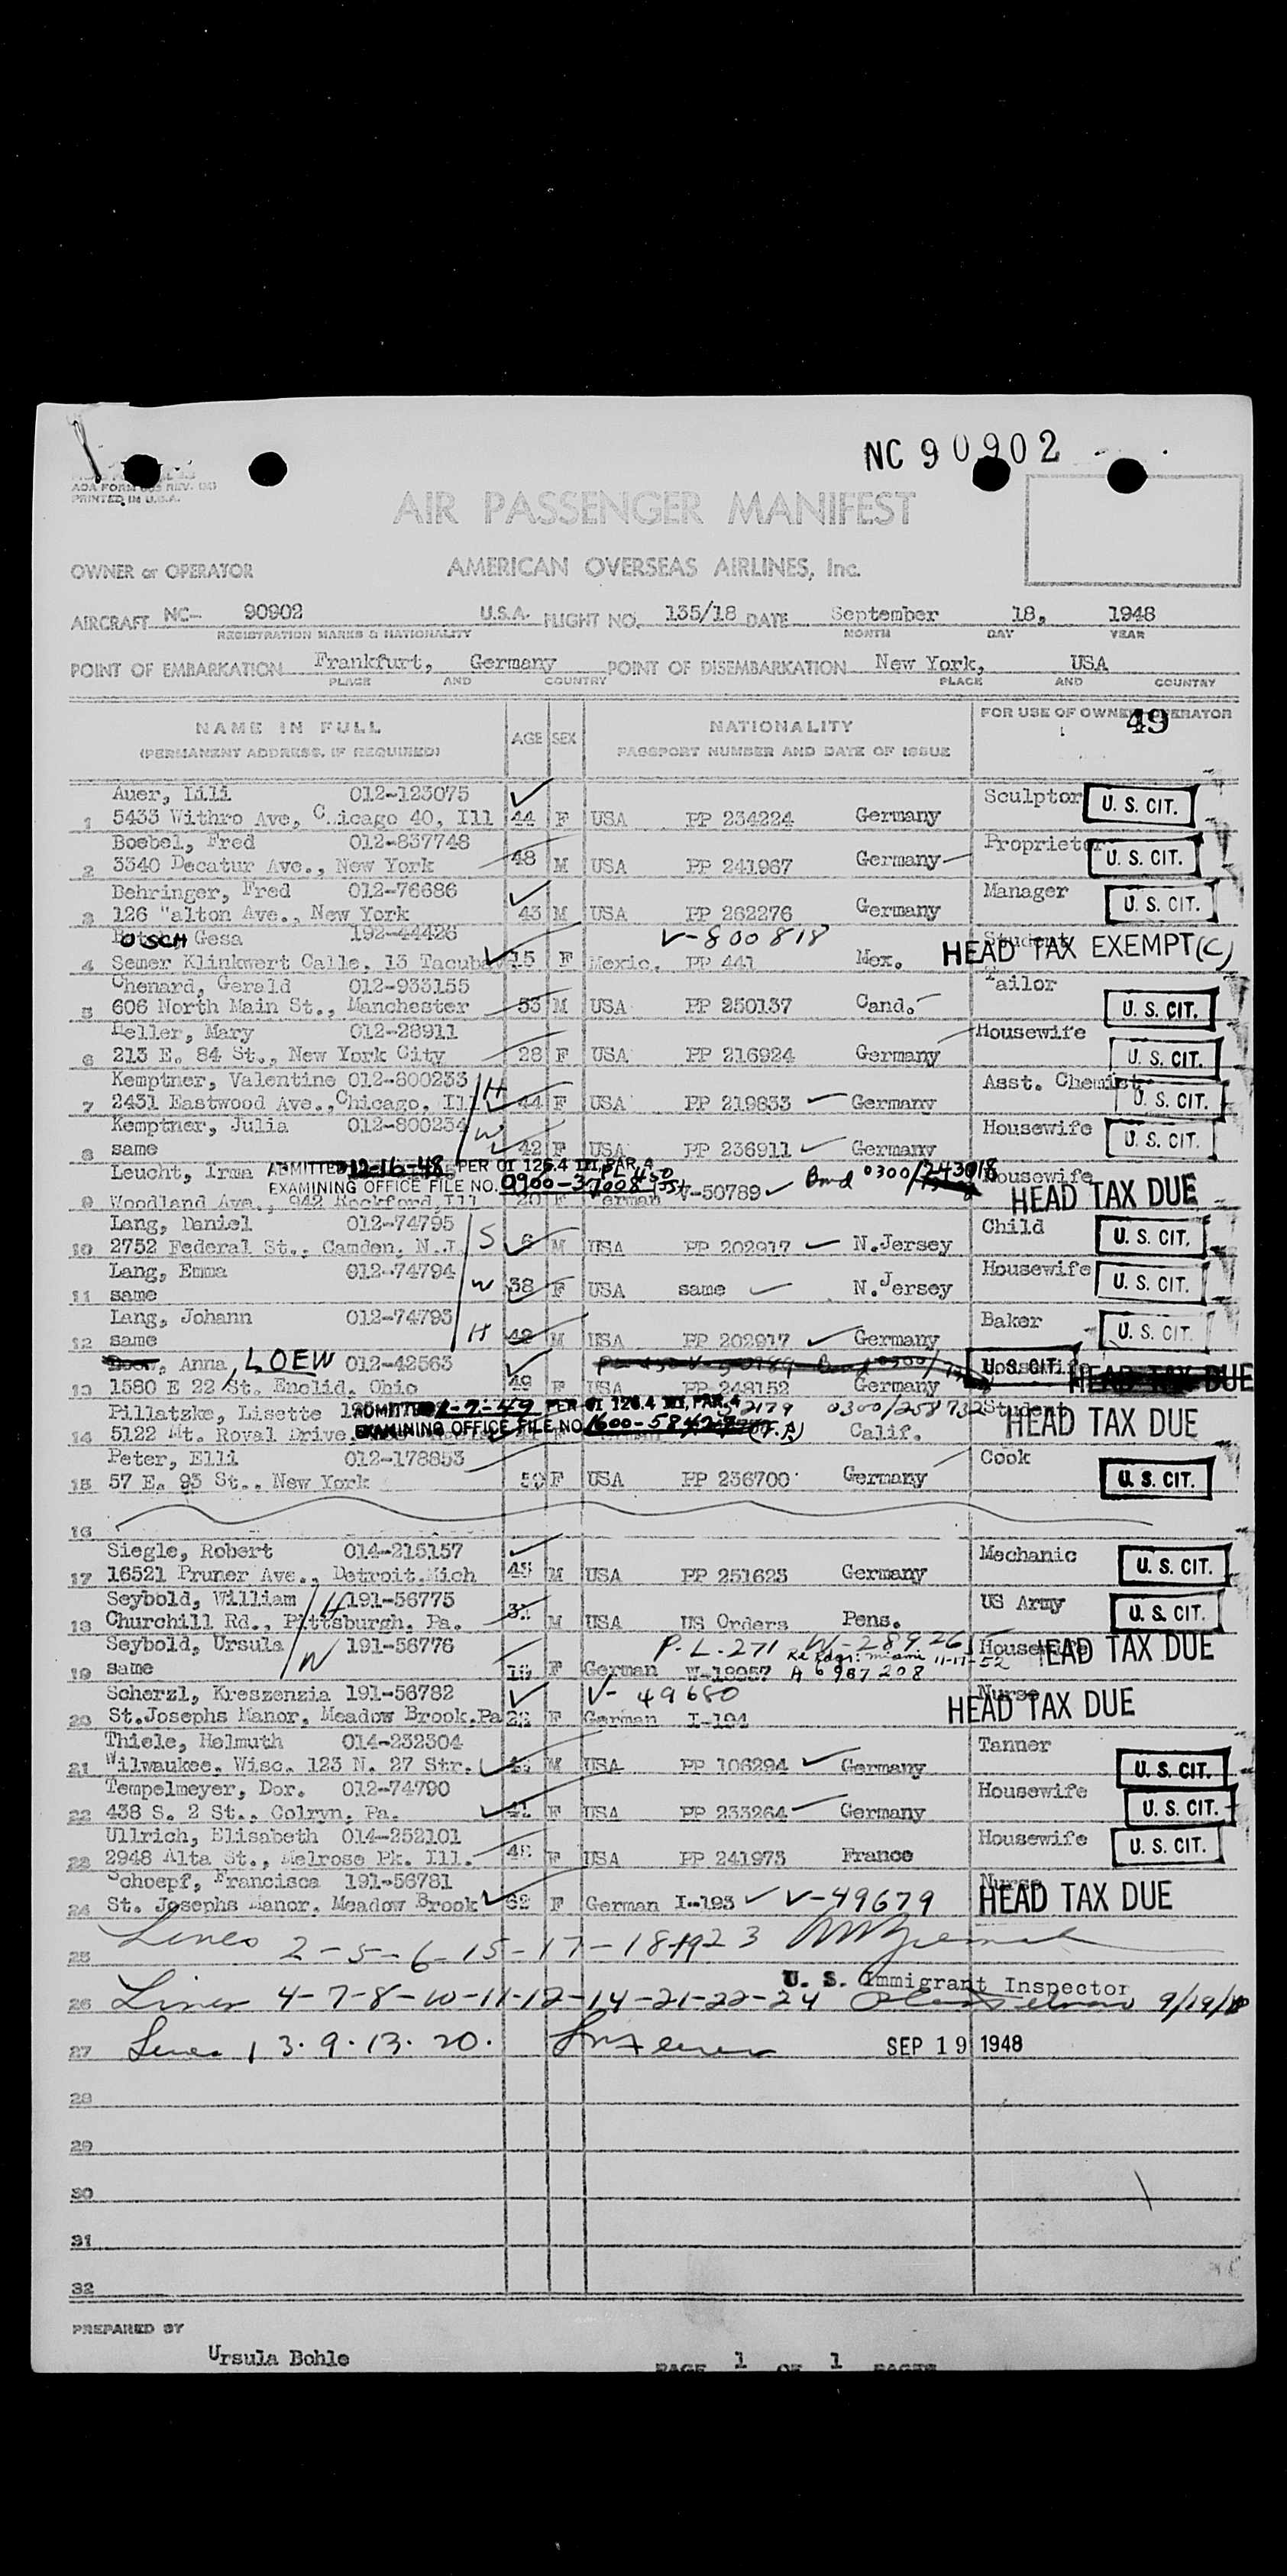 NC 90902
AOA FORM REV.
PRINTED IN U.S.A.
AIR PASSENGER MANIFEST
OWNER or OPERATOR AMERICAN OVERSEAS AIRLINES, Inc.
AIRCRAFT NC- 90902 U.S.A. FLIGHT NO. 135/18 DATE September 18, 1948
REGISTRATION MARKS & NATIONALITY MONTH DAY YEAR
POINT OF EMBARKATION Frankfurt, Germany POINT OF DISEMBARKATION New York, USA
PLACE AND COUNTRY PLACE AND COUNTRY
NAME IN FULL AGE SEX NATIONALITY FOR USE OF OWNER OPERATOR 49
(PERMANENT ADDRESS, IF REQUIRED) PASSPORT NUMBER AND DATE OF ISSUE
Auer, Lili 012-123075 Sculptor U. S. CIT.
1 5433 Withro Ave, Chicago 40, Ill 44 F USA PP 234224 Germany
Boebel, Fred 012-837748 Proprietor U. S. CIT.
2 3340 Decatur Ave., New York 48 M USA PP 241967 Germany
Behringer, Fred 012-76686 Manager U. S. CIT.
3 126 "alton Ave., New York 43 M USA PP 262276 Germany
OSCH Gesa 192-44426 V-800818 Student HEAD TAX EXEMPT (C)
4 Semer Klinkwert Calle, 13 Tacubay 15 F Mexic. PP 441 Mex.
Chenard, Gerald 012-933155 Tailor
5 606 North Main St., Manchester 53 M USA PP 250137 Cand. U. S. CIT.
Heller, Mary 012-28911 Housewife
6 213 E. 84 St., New York City 28 F USA PP 216924 Germany U. S. CIT.
Kemptner, Valentine 012-800233 H Asst. Chemist
7 2431 Eastwood Ave., Chicago, Ill 44 F USA PP 219833 Germany U. S. CIT.
Kemptner, Julia 012-800234 W Housewife U. S. CIT.
8 same 42 F USA PP 236911 Germany
Leucht, Irma ADMITTED 12-16-48 PER OI 126.4 III, PAR. A Bond 0300/243018 Housewife
EXAMINING OFFICE FILE NO. 0900-37008 V-50789 HEAD TAX DUE
9 Woodland Ave., 942 Rockford, Ill 20 F German
Lang, Daniel 012-74795 S Child U. S. CIT.
10 2752 Federal St., Camden, N.J. 6 M USA PP 202917 N.Jersey
Lang, Emma 012-74794 W Housewife U. S. CIT.
11 same 38 F USA same N.Jersey
Lang, Johann 012-74793 H Baker U. S. CIT.
12 same 42 M USA PP 202917 Germany
Anna, LOEW 012-42563 U. S. CIT. HEAD TAX DUE
13 1580 E 22 St. Euclid, Ohio 49 F USA PP 248152 Germany
Pillatzke, Lisette ADMITTED 1-7-49 PER OI 126.4 III, PAR. A 0300/258732 Student HEAD TAX DUE
14 5122 Mt. Royal Drive EXAMINING OFFICE FILE NO. 1600-58424 (T.R.) Calif.
Peter, Elli 012-178853 Cook
15 57 E. 93 St., New York 50 F USA PP 236700 Germany U. S. CIT.
16
Siegle, Robert 014-215157 Mechanic U. S. CIT.
17 16521 Pruner Ave., Detroit.Mich 43 M USA PP 251623 Germany
Seybold, William H 191-56775 US Army U. S. CIT.
18 Churchill Rd., Pittsburgh, Pa. M USA US Orders Pens.
Seybold, Ursula W 191-56776 P.L.271 W-28926 Housewife HEAD TAX DUE
Miami 11-17-52
19 same F German W-18957 A 6987208
Scherzl, Kreszenzia 191-56782 V-49680 Nurse HEAD TAX DUE
20 St.Josephs Manor, Meadow Brook.Pa F German I-194
Thiele, Helmuth 014-232304 Tanner
21 Wilwaukee, Wisc. 123 N. 27 Str. M USA PP 106294 Germany U. S. CIT.
Tempelmeyer, Dor. 012-74790 Housewife
22 438 S. 2 St., Colryn, Pa. 41 F USA PP 233264 Germany U. S. CIT.
Ullrich, Elisabeth 014-252101 Housewife U. S. CIT.
23 2948 Alta St., Melrose Pk. Ill. F USA PP 241973 France
Schoepf, Francisca 191-56781 Nurse HEAD TAX DUE
24 St. Josephs Manor, Meadow Brook 62 F German I-193 V-49679
25 Lines 2-5-6-15-17-18-19-23
U. S. Immigrant Inspector
26 Lines 4-7-8-10-11-12-14-21-22-24 9/19/48
27 Lines 1 3. 9. 13. 20. SEP 19 1948
28
29
30
31
32
PREPARED BY
Ursula Bohle PAGE 1 OF 1 PAGES